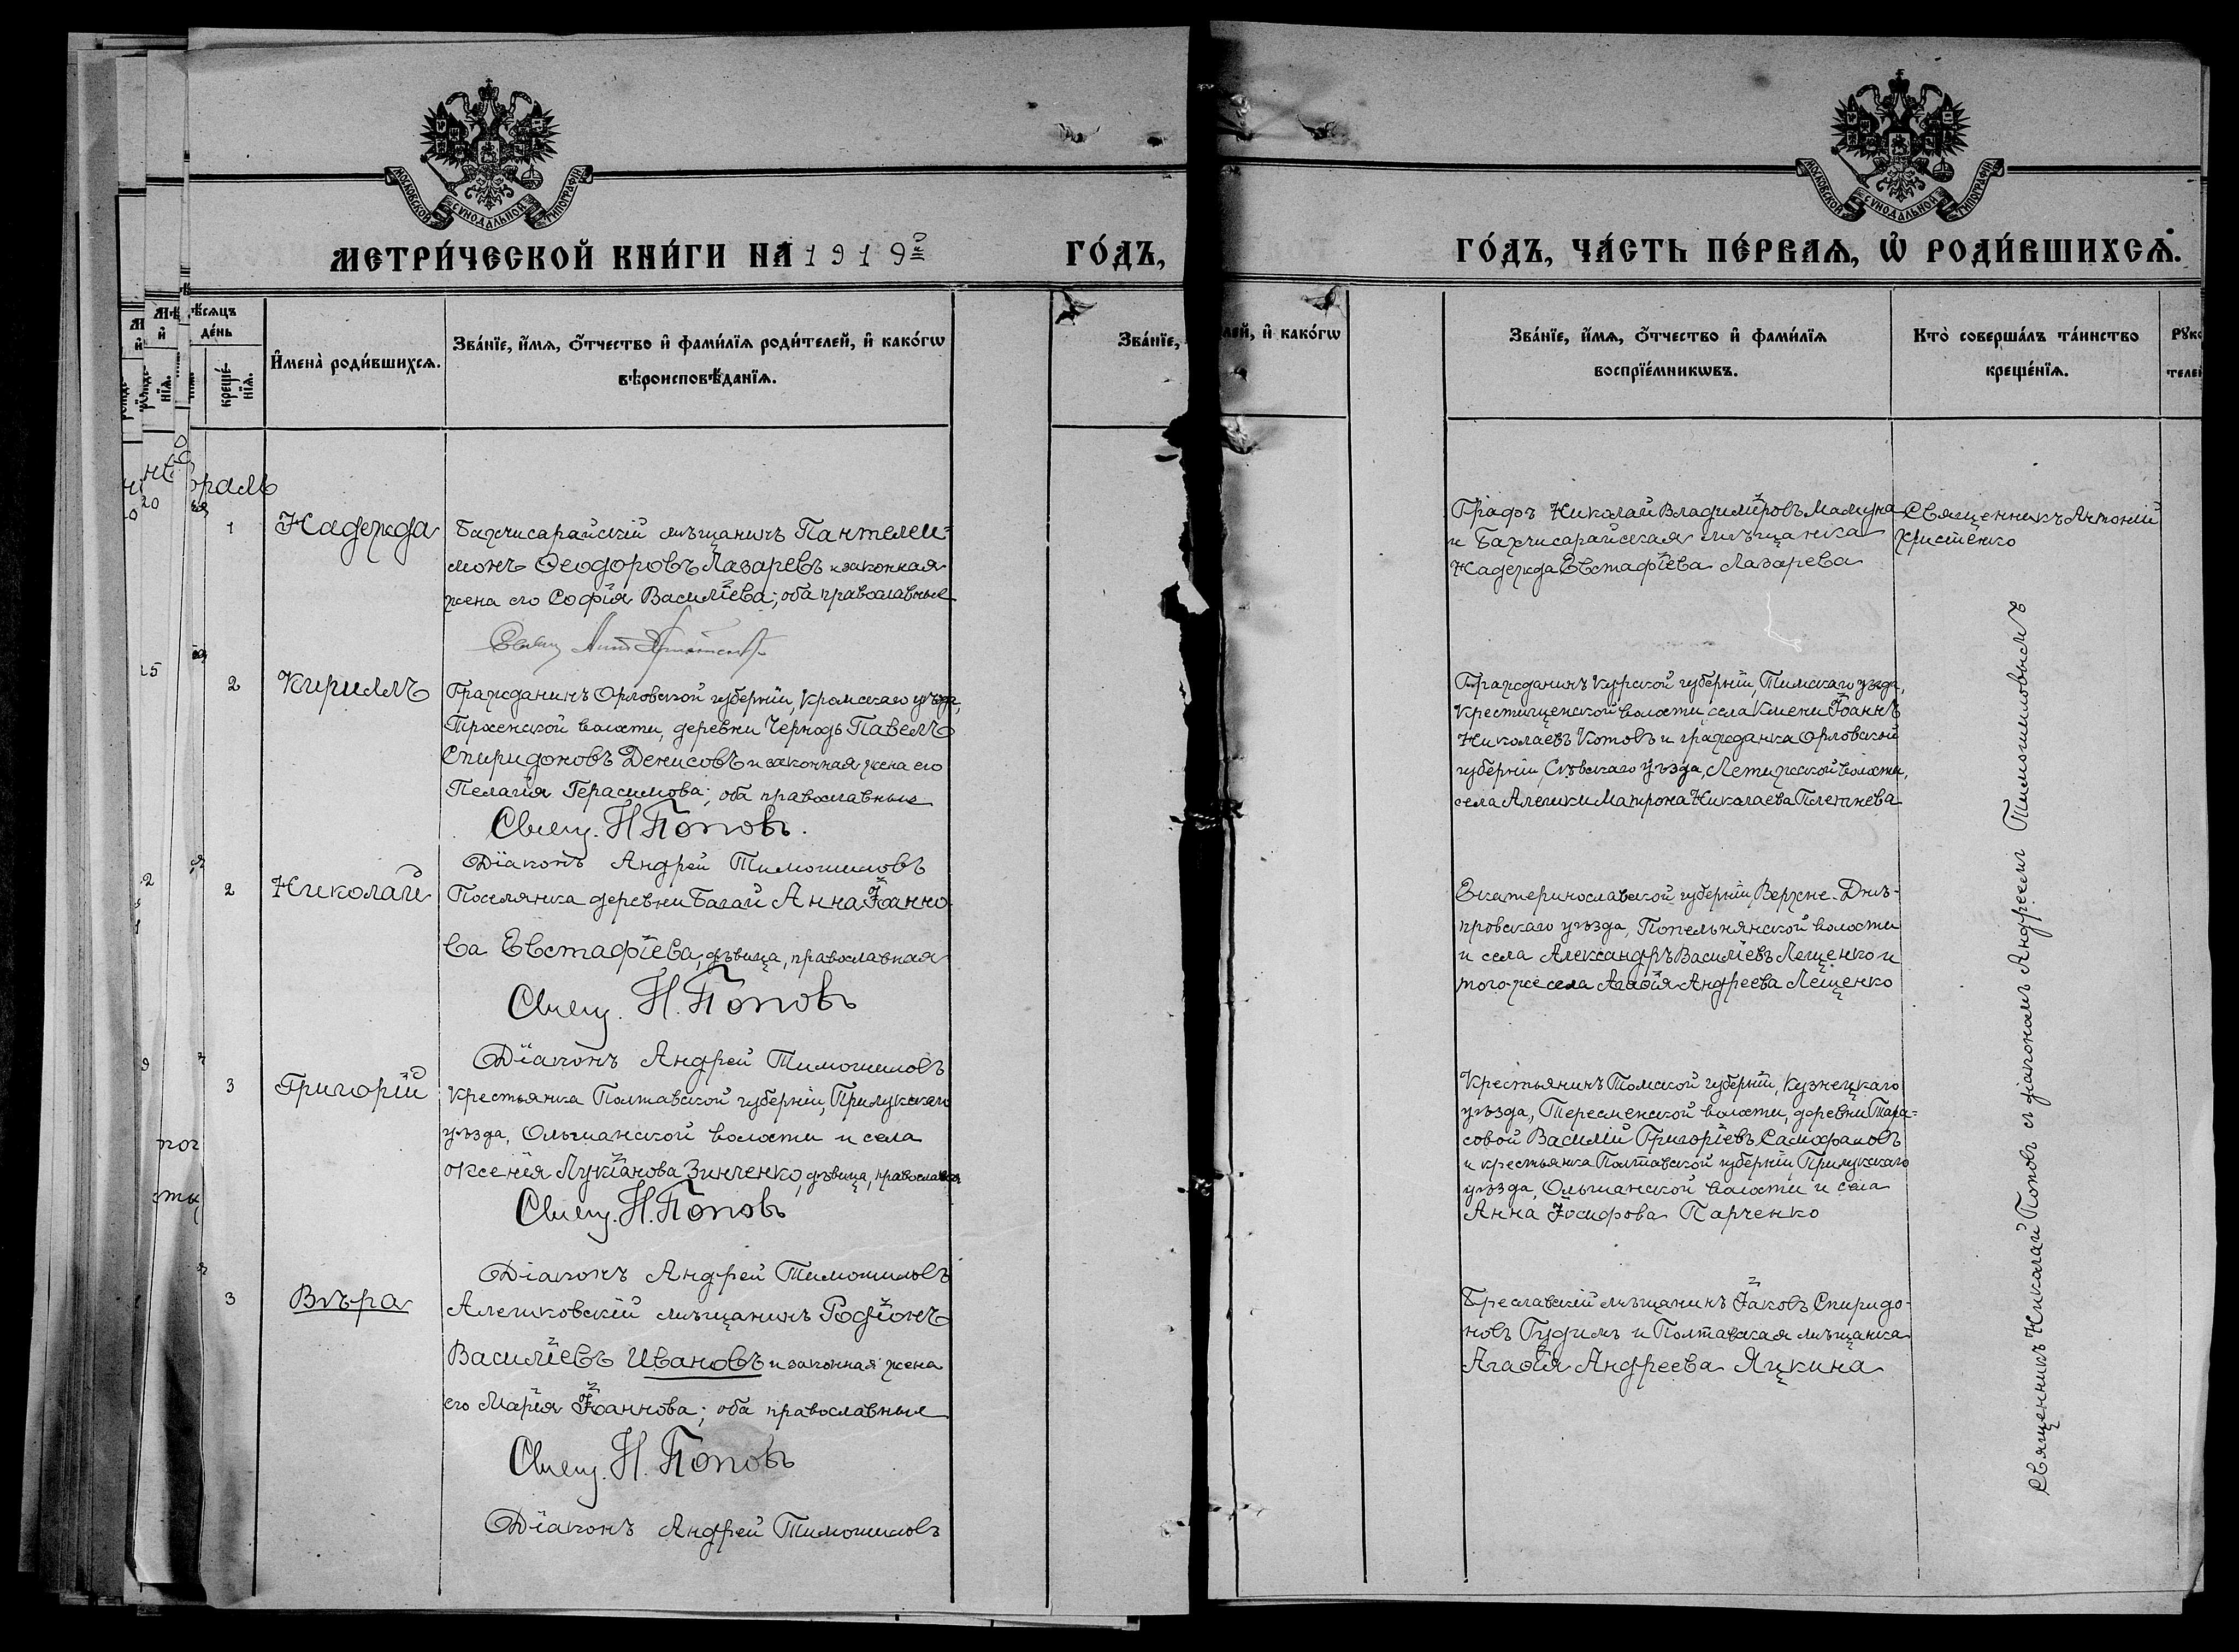 МОСКОВСКОЙ СѴНОДАЛЬНОЙ ТИПОГРАФІИ
МЕТРИ́ЧЕСКОЙ КНИ́ГИ НА 1919й ГО́ДЪ,
мѣсяцъ
де́нь
креще́-
нїѧ.
И҆мена̀ роди́вшихсѧ.
Зва́нїе, и҆́мѧ, ѻ҆́тчество и҆ фами́лїѧ роди́телей, и҆ како́гѡ
вѣроисповѣ́данїѧ.
Зва́нїе,
1
Надежда
Бахчисарайскій мѣщанинъ Пантелеи=
монъ Ѳеодоровъ Лазаревъ и законная
жена его Софія Василіева; оба православные
2
Кириллъ
Гражданинъ Орловской губерніи, Кромскаго уѣзда,
Тросенской волости, деревни Чернодь Павелъ
Спиридоновъ Денисовъ и законная жена его
Пелагія Герасимова; оба православные
Свящ. Н. Поповъ.
Діаконъ Андрей Тимошиловъ
2
Николай
Поселянка деревни Багай Анна Іоанно-
ва Евстафіева, дѣвица, православная
Свящ. Н. Поповъ
Діаконъ Андрей Тимошиловъ
3
Григорій
Крестьянка Полтавской губерніи, Прилукскаго
уѣзда, Ольшанской волости и села
Оксенія Лукіанова Зинченко, дѣвица, православн.
Свящ. Н. Поповъ
Діаконъ Андрей Тимошиловъ
3
Вѣра
Алешковскій мѣщанинъ Родіонъ
Василіевъ Ивановъ и законная жена
его Марія Іоаннова; оба православные
Свящ. Н. Поповъ
Діаконъ Андрей Тимошиловъ
МОСКОВСКОЙ СѴНОДАЛЬНОЙ ТИПОГРАФІИ
ГО́ДЪ, ЧА́СТЬ ПЕ́РВАѦ, Ѡ҆ РОДИ́ВШИХСѦ.
лей, и҆ како́гѡ
Зва́нїе, и҆́мѧ, ѻ҆́тчество и҆ фами́лїѧ
воспрїе́мникѡвъ.
Кто̀ соверша́лъ та́инство
креще́нїѧ.
Графъ Николай Владиміровъ Мамуна
и Бахчисарайская мѣщанка
Надежда Евстафіева Лазарева
Священникъ Антоній
Христенко
Гражданинъ Курской губерніи, Тимскаго уѣзда,
Крестищенской волости, села Кшени Іоаннъ
Николаевъ Котовъ и гражданка Орловской
губерніи, Сѣвскаго уѣзда, Летижской волости,
села Алешки Матрона Николаева Плетнева
Екатеринославской губерніи Верхне-Днѣ-
провскаго уѣзда, Попельнянской волости
и села Александръ Василіевъ Лещенко и
того-же села Агаѳія Андреева Лещенко
Крестьянинъ Томской губерніи, Кузнецкаго
уѣзда, Терсменской волости, деревни Тара=
совой Василій Григоріевъ Самохваловъ
и крестьянка Полтавской губерніи Прилукскаго
уѣзда, Ольшанской волости и села
Анна Іосифова Парченко
Бреславскій мѣщанинъ Іаковъ Спиридо-
новъ Гудимъ и Полтавская мѣщанка
Агаѳія Андреева Яцкина
Священникъ Николай Поповъ съ діакономъ Андреемъ Тимошиловымъ